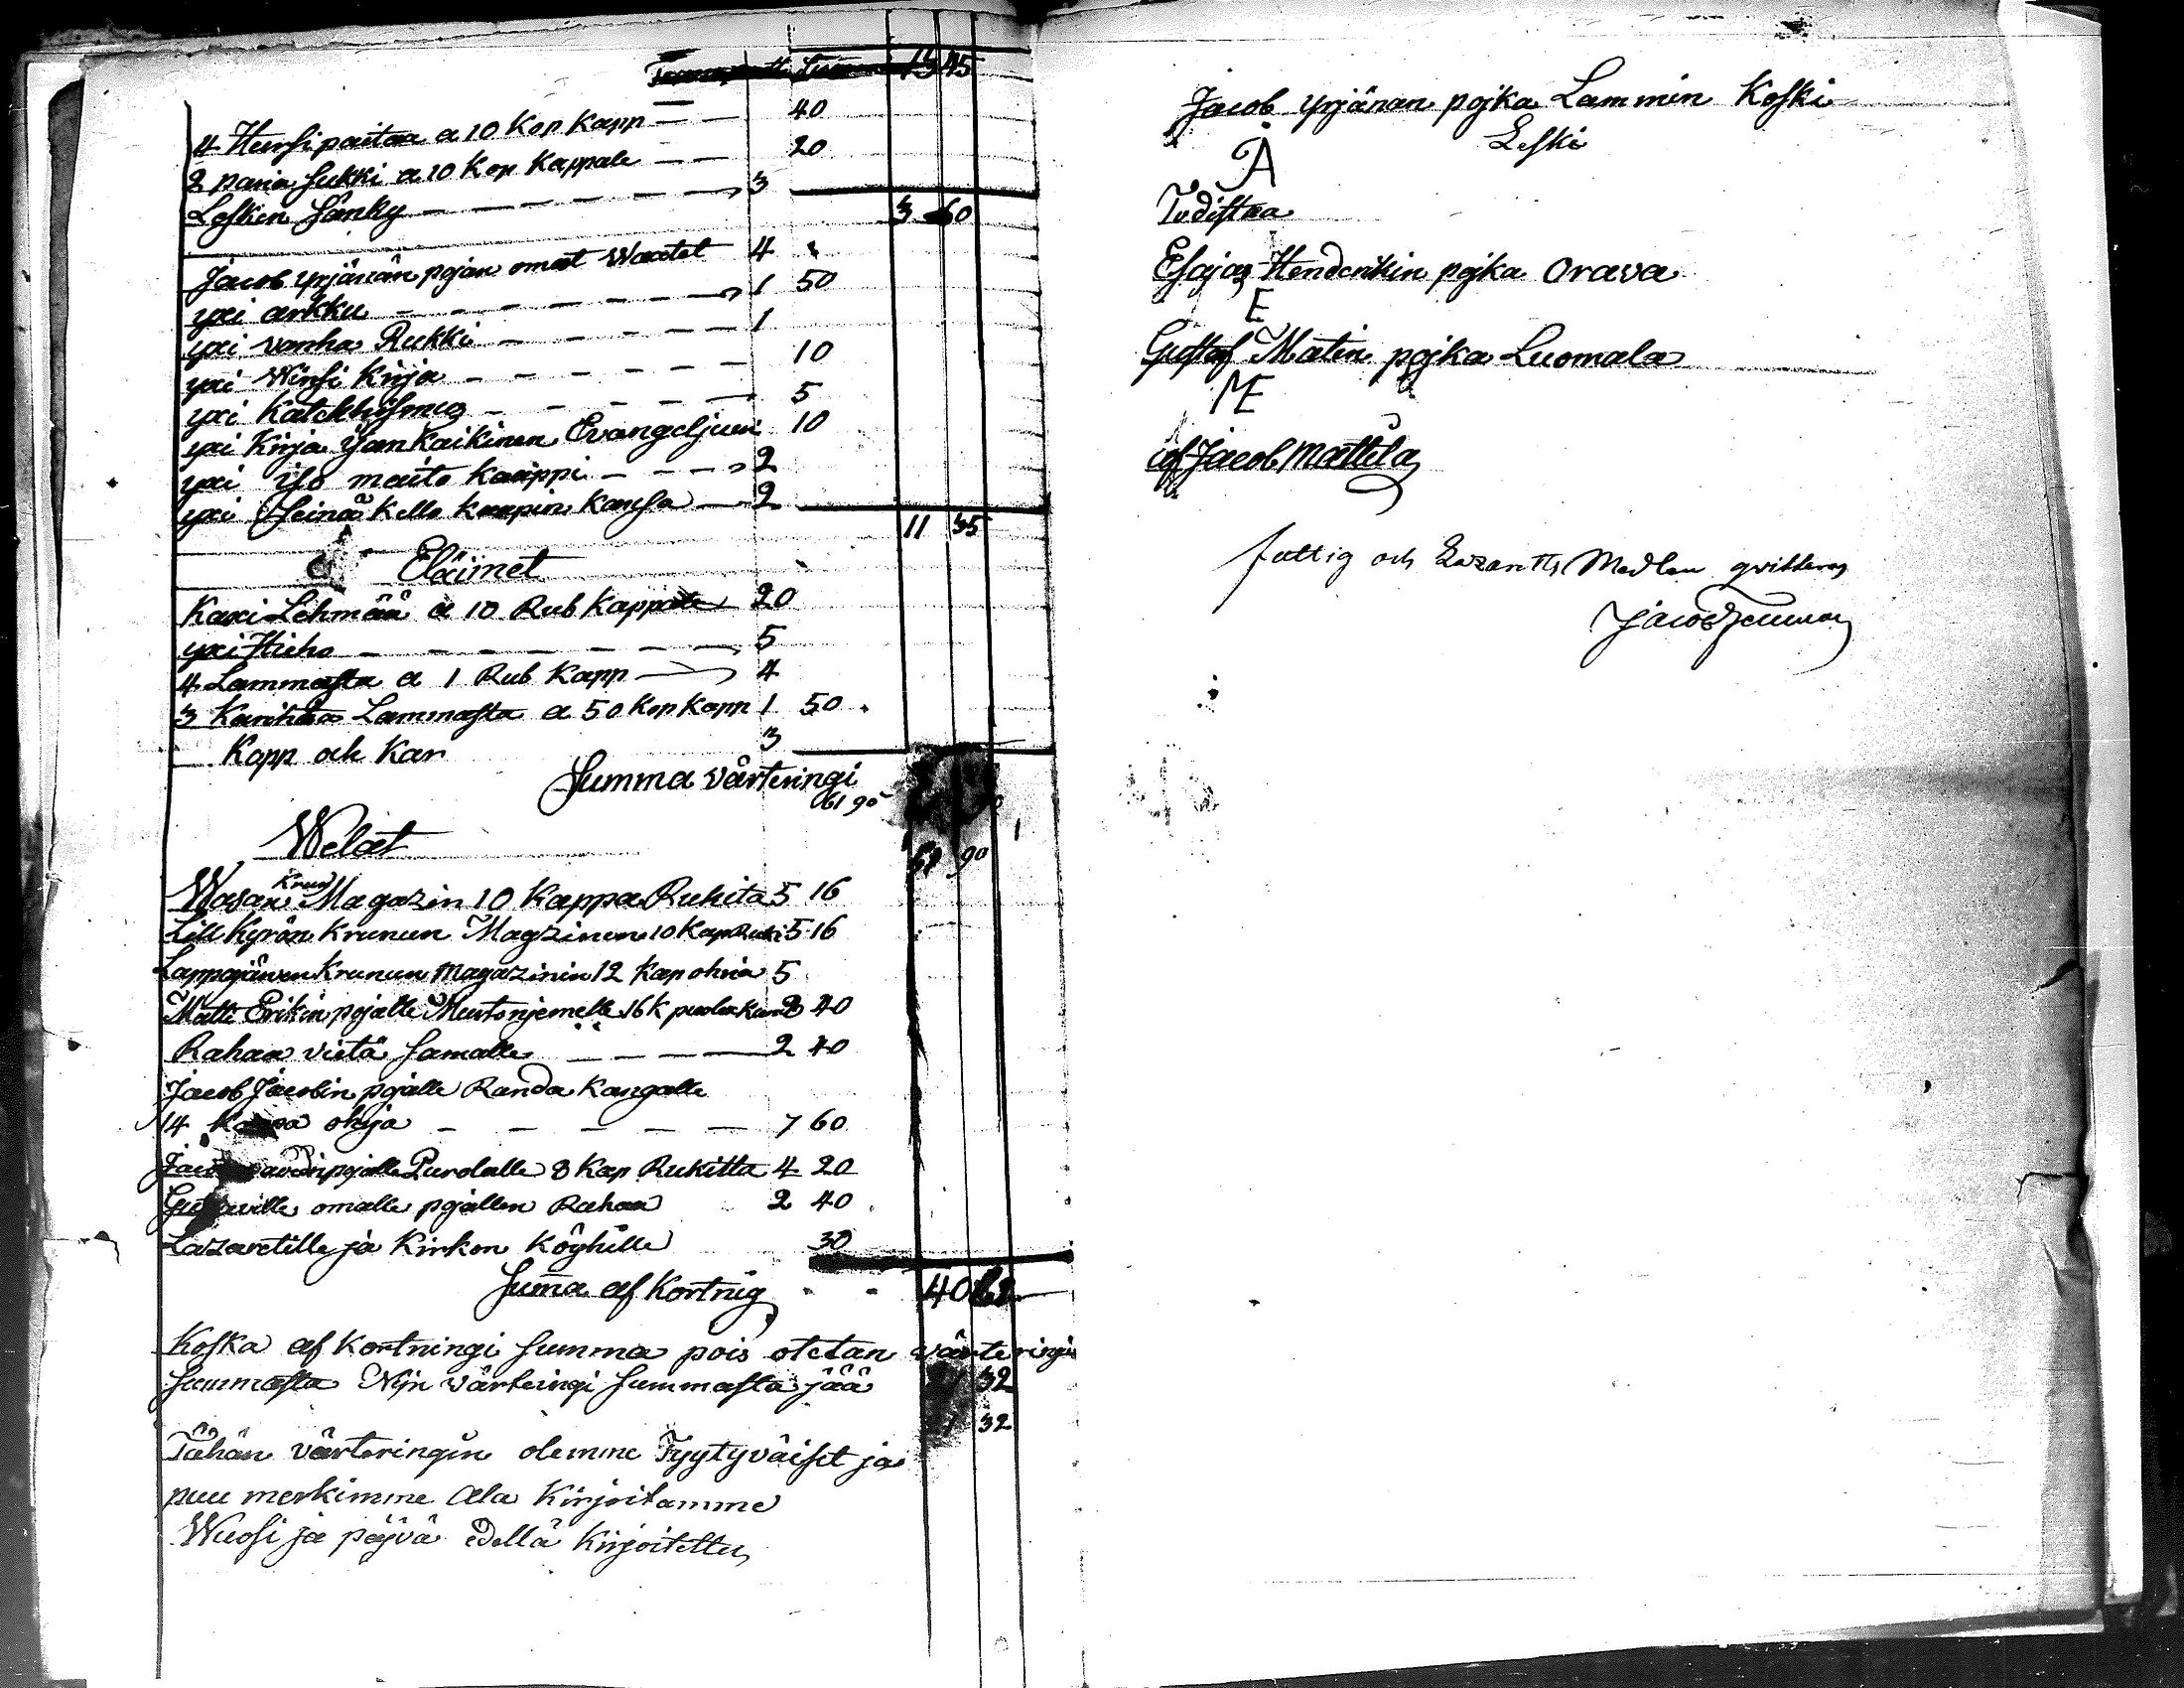 Summa 13 45
4 Hursipaitaa a 10 Kop Kapp 40
2 paria sukki a 10 Kop Kappale 20
Lesken sänky 3
3 60
Jacob yrjänän pojan omat Waatet 4
yxi arkku 1 50
yxi vanha Rukki 1
yxi Wirsi Kirja 10
yxi Katekhismus 5
yxi Kirja ijankaikinen Evangeljumi 10
yxi iso maito kaappi 2
yxi Seinä Kello kaapin kansa 2
11 35
Eläimet
Kaxi Lehmää a 10 Rub Kappale 20
yxi Hieho 5
4 Lammasta a 1 Rub Kapp 4
3 Karitsa Lammasta a 50 Kop Kapp 1 50
Kapp och Kar 3
Summa värteringi
61 90
Welat
61 90
Wasan Krun Magazin 10 Kappa Rukita 5 16
Lill Kyrön Krunun Magzinin 10 Kap Ruki 5 16
Lappajärven Krunun Magazinin 12 Kap ohria 5
Matti Erikin pojalle 16 K 2 40
Rahaa vietä samalle 2 40
Jacob Jacobin pojalle Randa Kangalle
14 Kappa ohija 7 60
pojalle Purolalle 8 Kap Rukitta 4 20
omalle pojallen Rahaa 2 40
Lazaretille ja Kirkon Köyhille 30
Suma af Kortnig 40
Koska af kortningi summa pois otetan värteringin
summasta Nijn värteingi summasta jää 32
32
Tähän värteringiin olemme Tyytyväiset ja
puu merkimme ala Kirjoitamme
Wuosi ja päjvä edellä Kirjoitettu
Jacob yrjänan pojka Lammin Koski
Leski
A
Todistaa
Esajas Henderikin pojka Orava
E
Gustaf Matin pojka Luomala
ME
af Jacob Mattila
fattig och Lazaretts Medlen qvitteras